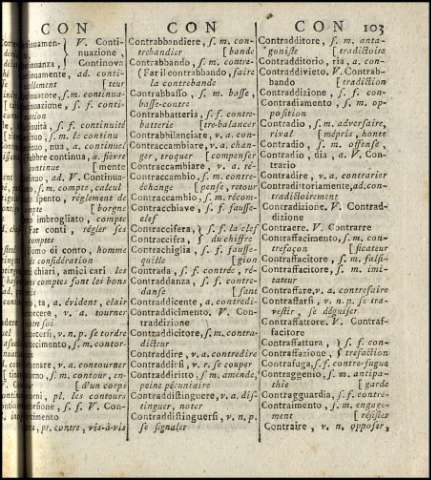 CON
CON
CON 103
V. Conti-
nuazione,
Continova
ad. conti-
s. m. continua-
s. f. conti-
s. f. continuité
s. m. le continu
nua, a. continuel
febbre continua, a. fievre
continue
ad. V. Continua-
s. m. compte, calcul
règlement de
compte
imbrogliato, compte
Far conti, régler ses
comptes
Uomo di conto, homme
considération
chiari, amici cari les
comptes font les bons
a. évident, clair
v. a. tourner
v. n. p. se tordre
s. m. contor-
v. a. contourner
s. m. contour, en-
[d'un corps
pl. les contours
s. f. V. Con-
torcimento
pr. contre, vis-à-vis
Contrabbandiere, s. m. con-
trebandier [bande
Contrabbando, s. m. contre-
(Far il contrabbando, faire
la contrebande
Contrabbasso, s. m. basse,
basse-contre
Contrabbatteria, s. f. contre-
batterie [tre-balancer
Contrabbilanciare, v. a. con-
Contraccambiare, v. a. chan-
ger, troquer [compenser
Contraccambiare, v. a. ré-
Contraccambio, s. m. contre-
échange [pense, retour
Contraccambio, s. m. récom-
Contracchiave, s. f. fausse-
clef
Contraccifera, } s. f. la clef
Contraccifra, } du chiffre
Contrachiglia, s. f. fausse-
quille [gion
Contrada, s. f. contrée, ré-
Contraddanza, s. f. contre-
danse [sant
Contraddicente, a. contredi-
Contraddicimento. V. Con-
traddizione
Contraddicitore, s. m. contra-
dicteur
Contraddire, v. a. contredire
Contraddirsi, v. r. se couper
Contraddiritto, s. m. amende,
peine pécuniaire
Contraddistinguere, v. a. dis-
tinguer, noter
Contraddistinguersi, v. n. p.
se signaler
Contradditore, s. m. anta-
goniste [tradictoire
Contradditorio, ria, a. con-
Contraddivieto. V. Contrab-
bando [tradiction
Contraddizione, s. f. con-
Contradiamento, s. m. op-
position
Contradio, s. m. adversaire,
rival [mépris, honte
Contradio, s. m. offense,
Contradio, dia, a. V. Con-
trario
Contradire, v. a. contrarier
Contraditoriamente, ad. con-
tradictoirement
Contradizione. V. Contrad-
dizione
Contraere. V. Contrarre
Contraffacimento, s. m. con-
trefaçon [sificateur
Contraffacitore, s. m. falsi-
Contraffacitore, s. m. imi-
tateur
Contraffare, v. a. contrefaire
Contraffarsi, v. n. p. se tra-
vestir, se déguiser
Contraffattore. V. Contraf-
facitore
Contraffattura, } s. f. con-
Contraffazione, } trefaction
Contrafuga, s. f. contre-fugue
Contraggenio, s. m. antipa-
thie [garde
Contragguardia, s. f. contre-
Contraimento, s. m. engage-
ment [résister
Contraire, v. n. opposer,